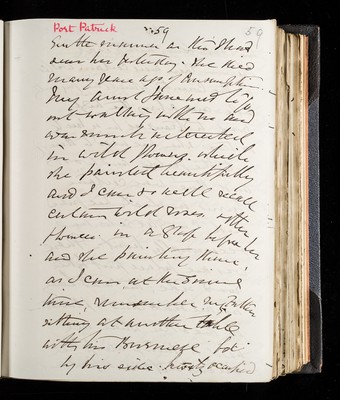 Port Patrick 59 59
gentle manner as this I had
seen her yesterday. She died
many years ago of Consumption
My Aunt Jane used to go
out walking with us and
was much interested
in wild flowers, which
she painted beautifully
and I can so well recall
certain wild roses, & other
flowers in a glass before her
and she painting them,
as I can at the same
time, remember my Father
sitting at another table
with his
by his side busily occupied